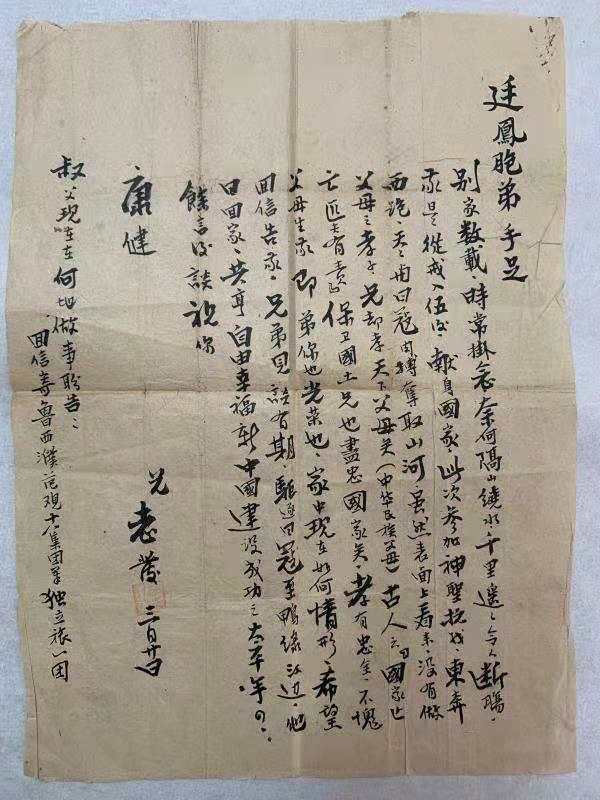 廷鳳胞弟手足
別家数載、時常掛念、奈何隔山繞水、千里遙、令人断腸、
家是從戒入伍後、献身國家、此次参加神聖抗戰、東奔
西跑、天天用日寇肉搏奪取山河、虽然表面上看来、没有做
父母之孝子、兄却孝天下父母矣（中华民族父母）古人云、國家亡
亡匹夫有責、保卫國土兄也盡忠國家矣、孝有忠全、不愧
父母生我、即弟你也光荣也、家中現在如何情形、希望
回信告我、兄弟見談有期、駈逐日寇至鴨緑江边、他
日回家、共享自由幸福新中國建設成功之太平年可、
餘言後談祝你
康健
兄 志發 三月廿日
叔父現在在何地做事盼告、
回信寄魯西濮范观十集团軍独立旅一团